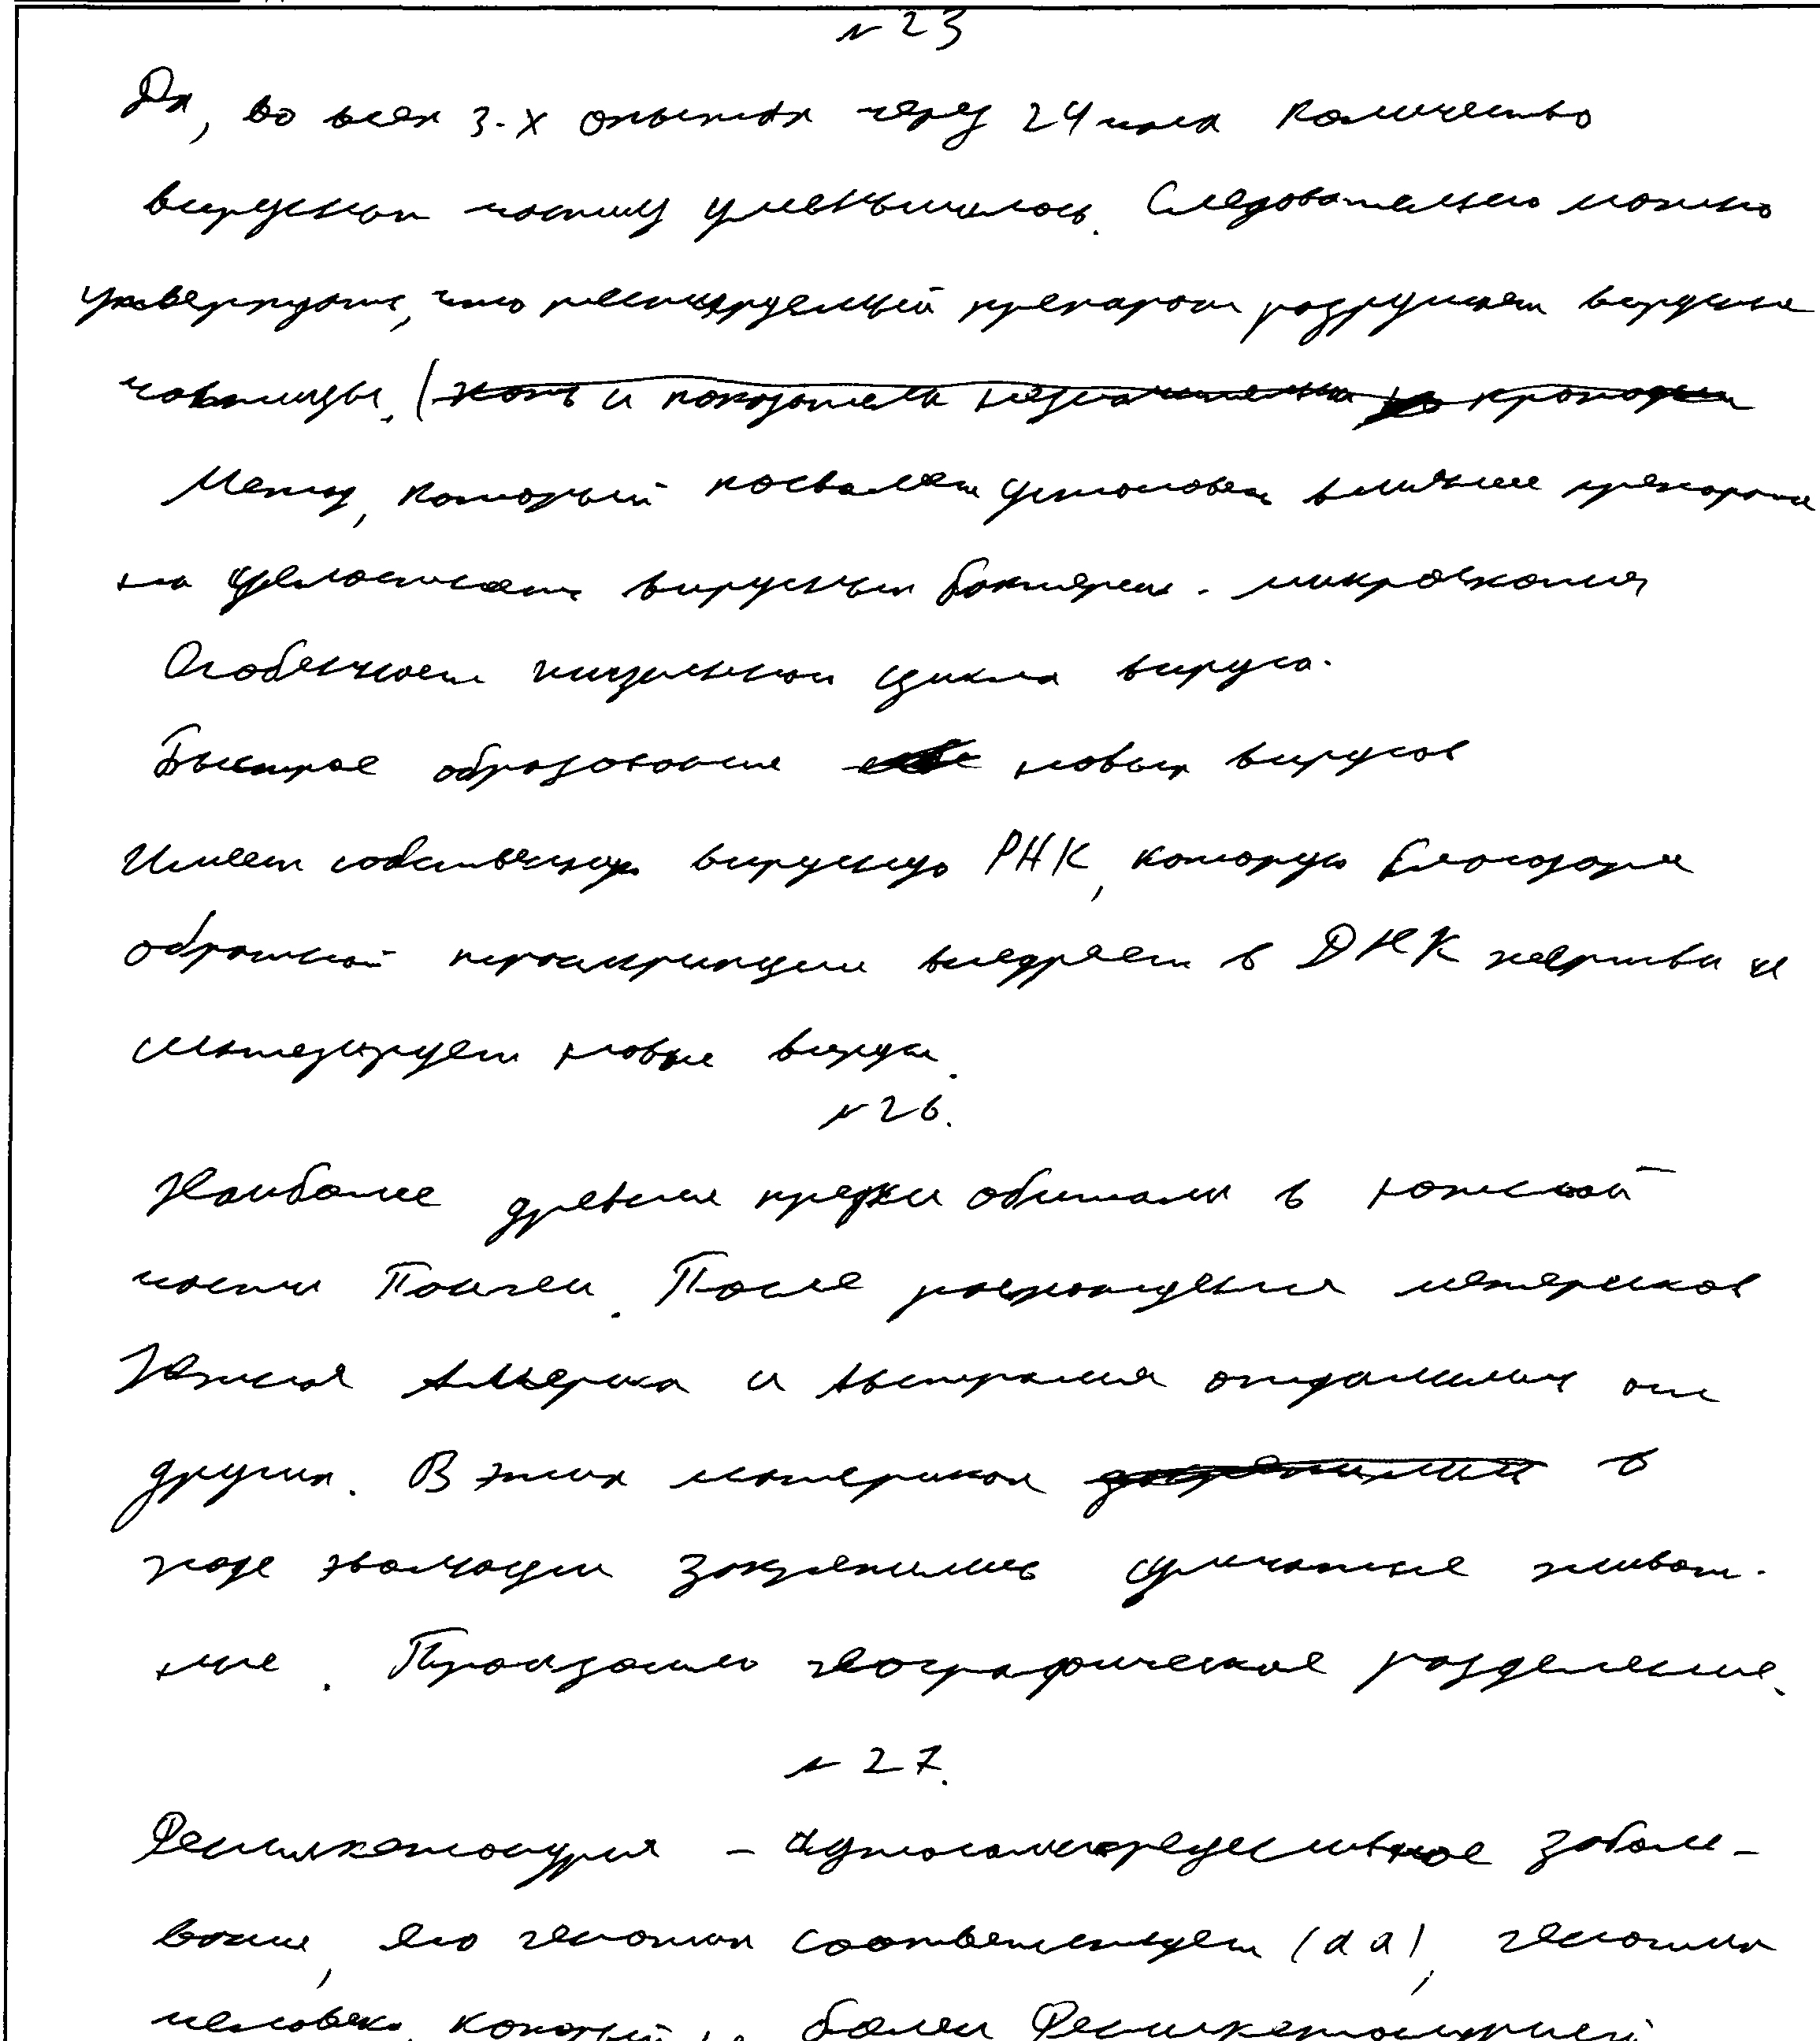 № 23
Да, во всех 3-х опытах через 24 часа количество
вирусных частиц уменьшилось. Следовательно можно
утверждать, что тестируемый препарат разрушает вирусные
частицы. (хоть и показатели незначительны но
Метод, который позволяет установить влияние препарата
на целостность вирусных бактерий - микроскопия
Особенности жизненного цикла вируса.
Быстрое образование новых вирусов
Имеет собственную вирусную РНК, которую благодаря
обратной транскрипции внедряет в ДНК жертвы и
синтезирует новые вирусы.
№ 26.
Наиболее древние предки обитали в южной
части Пангеи. После расхождения материков
Южная Америка и Австралия отдалились от
других. В этих материках закрепились в
ходе эволюции закрепились сумчатые живот-
ные. Произошло географическое разделение.
№ 27.
Фенилкетонурия - аутосомнорецессивное заболе-
вание, его генотип соответствует (aa), генотип
человека, который не болен Фенилкетонурией